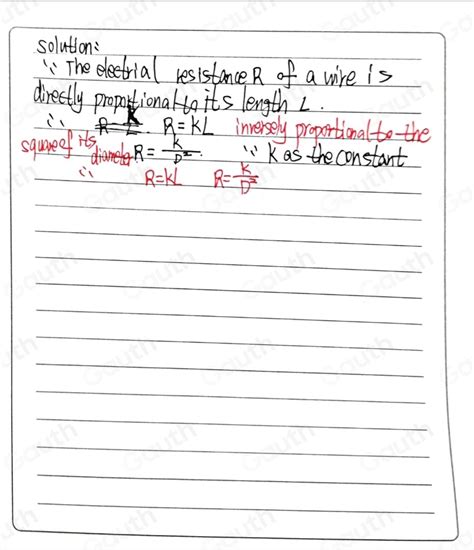 solution:
∵ The electrial resistance R of a wire is
directly proportional to its length L.
∴ R = KL inversely proportional to the
square of its diameter R = K/D² ∵ K as the constant
∴ R=KL R=K/D²